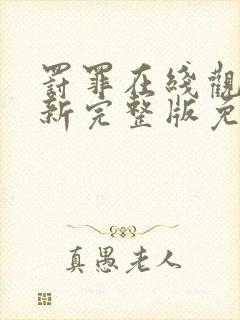 罸罪在綫觀
新完整版免
真愚老人